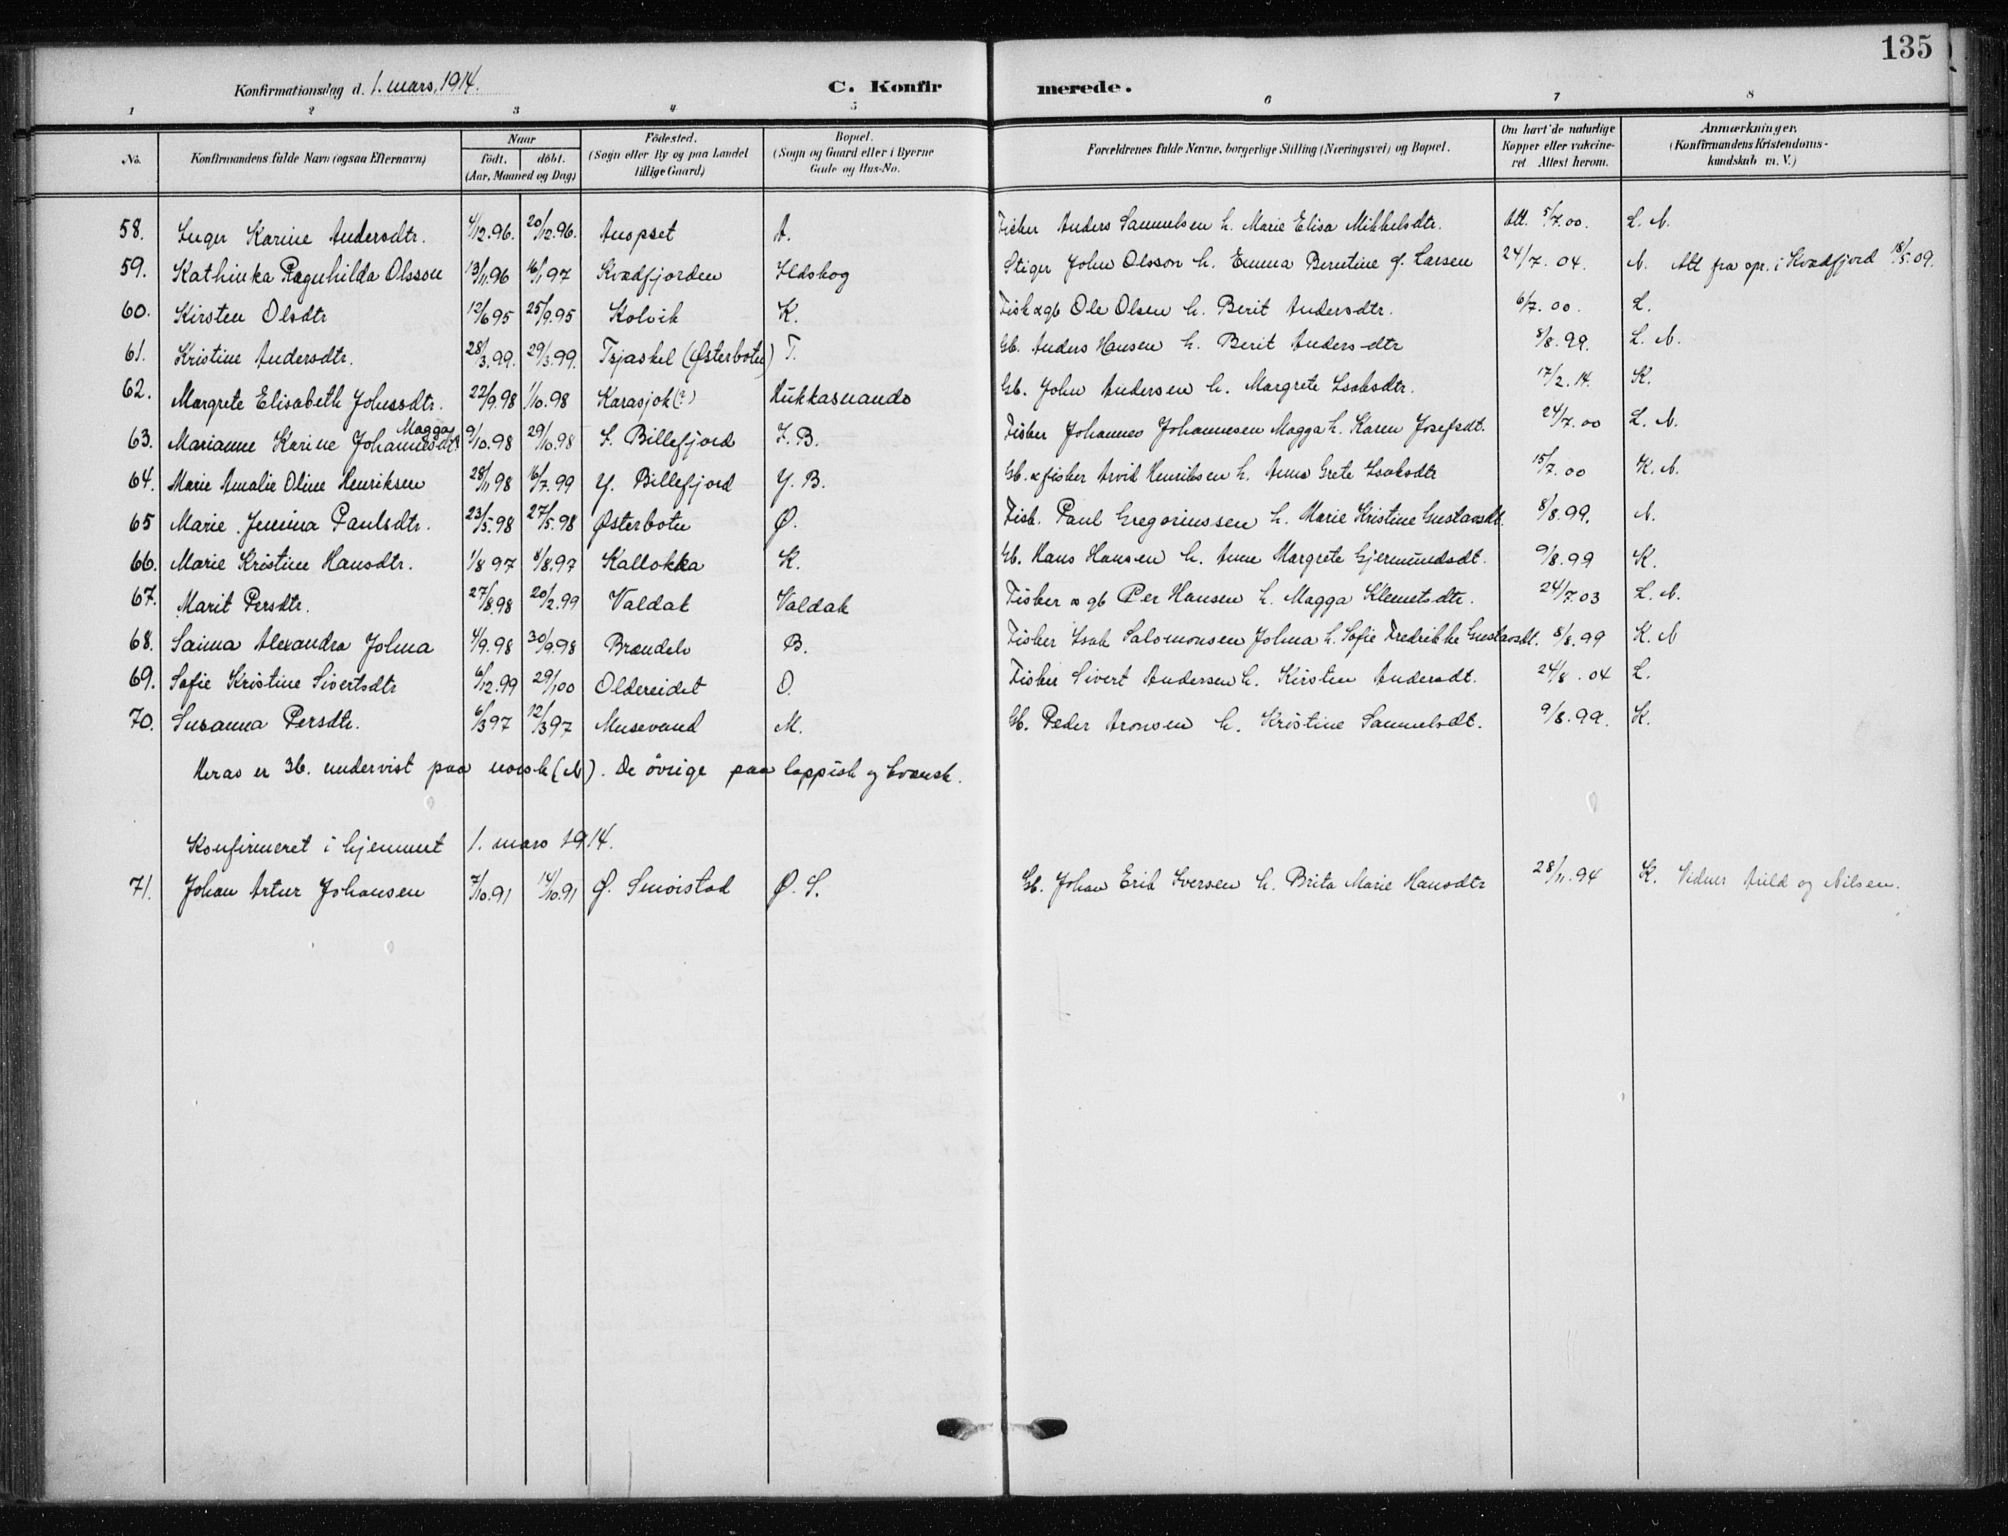 135
Konfirmationsdag d. 1. mars, 1914.
C. Konfir merede.
1 2 3 4 5 6 7 8
No. Konfirmandens fulde Navn (ogsaa Efternavn) Naar født. døbt. (Aar, Maaned og Dag) Fødested. (Sogn eller By og paa Landet tillige Gaard) Bopæl. (Sogn og Gaard eller i Byerne Gade og Hus-No. Forældrenes fulde Navne, borgerlige Stilling (Næringsvei) og Bopæl. Om havt de naturlige Kopper eller vakcineret Attest herom. Anmærkninger. (Konfirmandens Kristendomskundskab m. V.)
58. Inger Karine Andersdtr. 4/12.96. 20/12.96. Anopset A. Fisker Anders Samuelsen h. Marie Elisa Mikkelsdtr. Att. 5/7.00. L. N.
59. Kathinka Ragnhilda Olsson 13/11.96 16/1 97 Kvædfjorden Ildskog Stiger John Olsson h. Emma Berntine f. Larsen 24/7.04. N. Att fra spr. i Kvædfjord 18/5.09.
60. Kirsten Olsdtr 12/6 95 25/9.95 Kolvik K. Fisk & gb Ole Olsen h. Berit Andersdtr. 6/7.00. L.
61. Kristine Andersdtr. 28/3.99. 29/3.99. Tjaskel (Østerbotn) T. Gb. Anders Hansen h. Berit Andersdtr 8/8.99. L. N.
62. Margrete Elisabeth Johnsdtr. 22/9.98 1/10.98 Karasjok (?) Kukkasnando Gb. John Andersen h. Margrete Isaksdtr. 17/2.14. K.
63. Marianne Karine Johannesdtr Magga 9/10.98 29/10.98 I. Billefjord I. B. Fisker Johannes Johannesen Magga h. Karen Josefsdt. 24/7.00 L. N.
64. Marie Amalie Oline Henriksen 28/11 98 16/7.99 Y. Billefjord Y. B. Gb. & fisker Arvid Henriksen h. Anna Grete Isaksdtr 15/7.00 K. N.
65 Marie Jemima Paulsdtr. 23/5.98 27/5.98 Østerbotn Ø. Fisk. Paul Gregoriussen h. Marie Kristine Gustavsdt. 8/8.99. N.
66. Marie Kristine Hansdtr. 1/8 97 8/8.97 Kallokka K. Gb. Hans Hansen h. Anne Margrete Gjermundsdt. 9/8.99 K.
67. Marit Persdtr. 27/8.98 20/2.99 Valdak Valdak Fisker & gb Per Hansen h. Magga Klemetsdtr. 24/7.03 L. N.
68. Saima Alexandra Johna 4/9.98 30/9.98 Brændelv B. Fisker Isak Salomonsen Johna h. Sofie Fredrikke Gustavsdt. 8/8.99 K. N
69. Sofie Kristine Sivertsdtr 6/12.99 29/1 00 Oldereidet O. Fisker Sivert Andersen h. Kirsten Andersdt. 24/8.04 L.
70. Susanna Persdtr. 6/3 97 12/3 97 Musevand M. Gb. Peder Aronsen h. Kristine Samuelsdt. 9/8.99. K.
Heraf er 36. undervist paa norsk (N). De øvrige paa lappisk og kvænsk.
Konfirmeret i hjemmet 1. mars 1914.
71. Johan Artur Johansen 7/10.91 14/10.91 Ø. Smørstad Ø. S. Gb. Johan Erik Iversen h. Brita Marie Hansdtr 28/11.94 K. Vidner Auld og Nilsen.